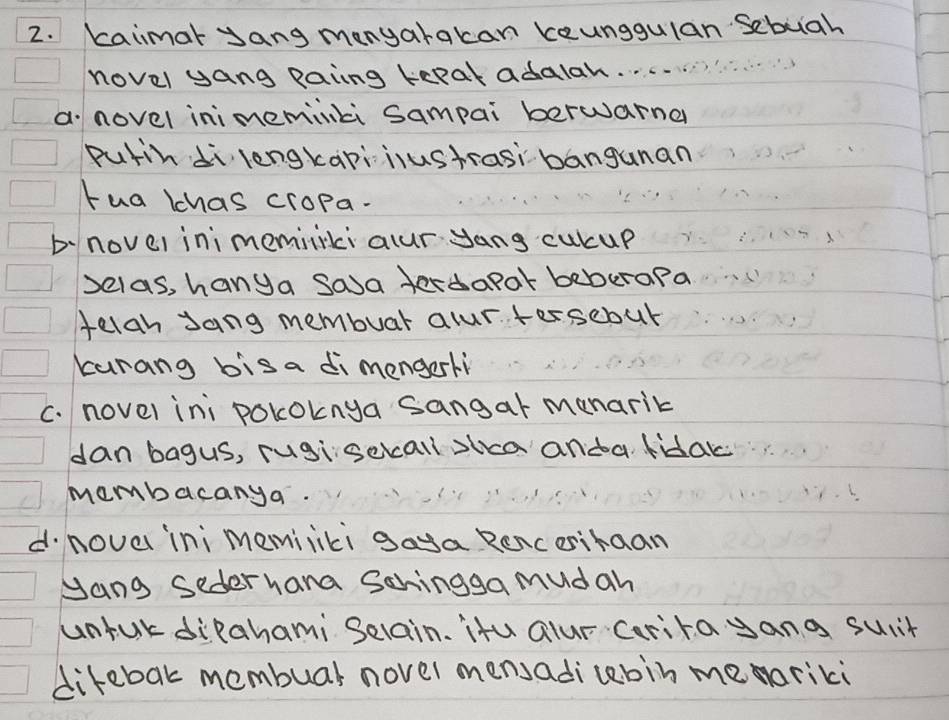 2. kaimat yang menyatakan keunggulan Sebuah
novel yang Paling tepat adalah.......
a. novel ini memiliki Sampai berwarna
Putih di lengkapi ilustrasi bangunan
tua khas cropa.
b. novel ini memiliki alur yang cukup
jelas, hanya saja terdapat beberapa
telah yang membuat alur tersebut
kurang bisa di mengerti
c. novel ini pokoknya Sangat menarik
dan bagus, rugi sekali jika anda tidak
membacanya.
d. novel ini memiliki gaya Pencerihaan
yang sederhana Sehingga mudah
untuk dipahami Selain. itu alur cerita yang sulit
ditebak membuat novel menjadi lebih menariki